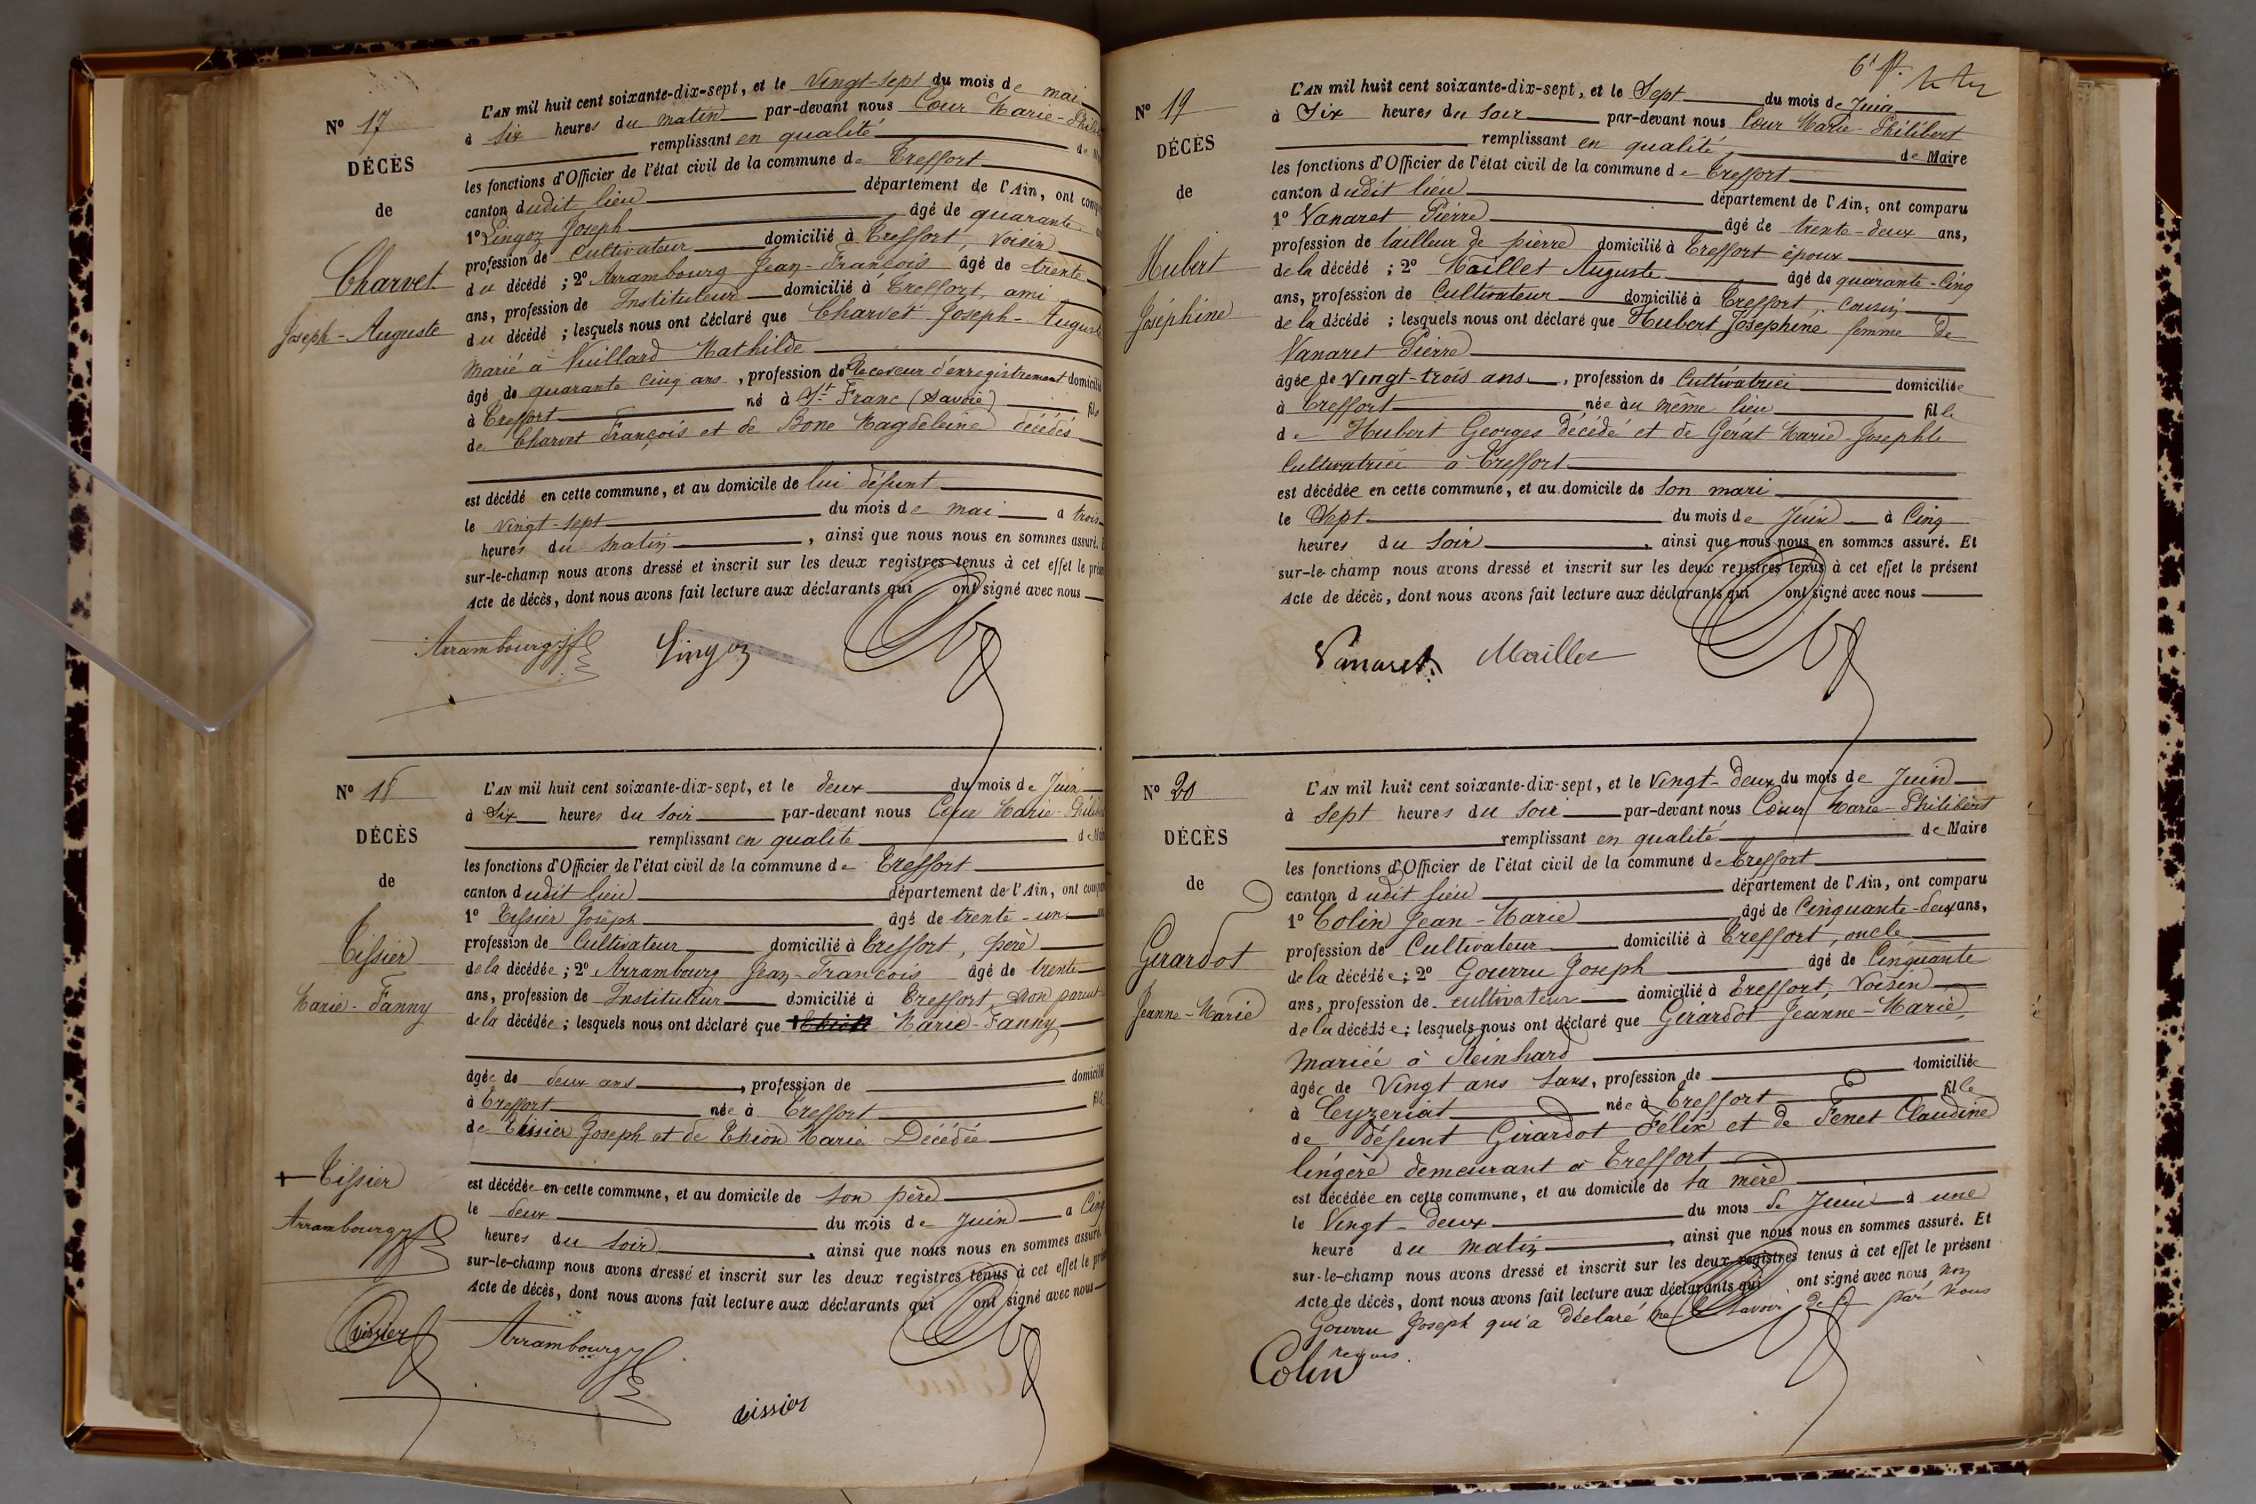 N° 17
DÉCÈS
de
Charvet
Joseph-Auguste
L'AN mil huit cent soixante-dix-sept, et le vingt-sept du mois de mai
à six heures du matin par-devant nous Cœur Marie-Phili
remplissant en qualité de M
les fonctions d'Officier de l'état civil de la commune de Treffort
canton dudit lieu département de l'Ain, ont comp
1° Lingoz Joseph âgé de quarante
profession de Cultivateur domicilié à Treffort, voisin
du décédé ; 2° Arrambourg Jean-François âgé de trente
ans, profession de Instituteur domicilié à Treffort, ami
du décédé ; lesquels nous ont déclaré que Charvet Joseph-Auguste
marié à Vuillard Mathilde
âgé de quarante cinq ans, profession de Receveur d'enregistrement domicilié
à Treffort né à St Franc (Savoie) fils
de Charvet François et de Bone Magdeleine décédés
est décédé en cette commune, et au domicile de lui défunt
le vingt-sept du mois de mai à trois
heures du matin, ainsi que nous nous en sommes assuré.
sur-le-champ nous avons dressé et inscrit sur les deux registres tenus à cet effet le prés
Acte de décès, dont nous avons fait lecture aux déclarants qui ont signé avec nous
Arrambourg Lingoz
N° 18
DÉCÈS
de
Tissier
Marie-Fanny
L'AN mil huit cent soixante-dix-sept, et le deux du mois de Juin
à Six heures du soir par-devant nous Cœur Marie-Philib
remplissant en qualité de Mai
les fonctions d'Officier de l'état civil de la commune de Treffort
canton dudit lieu département de l'Ain, ont compa
1° Tissier Joseph âgé de trente-un
profession de Cultivateur domicilié à Treffort, père
de la décédée ; 2° Arrambourg Jean-François âgé de trente
ans, profession de Instituteur domicilié à Treffort, non parent
de la décédée ; lesquels nous ont déclaré que Marie-Fanny
âgée de deux ans, profession de domicilié
à Treffort née à Treffort fille
de Tissier Joseph et de Thion Marie Décédée
est décédée en cette commune, et au domicile de son père
le deux du mois de Juin à Cinq
heures du soir, ainsi que nous nous en sommes assuré.
sur-le-champ nous avons dressé et inscrit sur les deux registres tenus à cet effet le prés
Acte de décès, dont nous avons fait lecture aux déclarants qui ont signé avec nous
+ Tissier
Arrambourg
Tissier Arrambourg
tissier
N° 19
DÉCÈS
de
Hubert
Joséphine
L'AN mil huit cent soixante-dix-sept, et le Sept du mois de Juin
à Six heures du soir par-devant nous Cœur Marie-Philibert
remplissant en qualité de Maire
les fonctions d'Officier de l'état civil de la commune de Treffort
canton dudit lieu département de l'Ain, ont comparu
1° Vanaret Pierre âgé de trente-deux ans,
profession de tailleur de pierre domicilié à Treffort époux
de la décédé ; 2° Maillet Auguste âgé de quarante-Cinq
ans, profession de Cultivateur domicilié à Treffort, cousin
de la décédé ; lesquels nous ont déclaré que Hubert Joséphine femme de
Vanaret Pierre
âgée de vingt-trois ans, profession de Cultivatrice domiciliée
à Treffort née au même lieu fille
de Hubert Georges décédé et de Gérat Marie-Josephte
Cultivatrice à Treffort
est décédée en cette commune, et au domicile de son mari
le Sept du mois de Juin à Cinq
heures du soir, ainsi que nous nous en sommes assuré. Et
sur-le-champ nous avons dressé et inscrit sur les deux registres tenus à cet effet le présent
Acte de décès, dont nous avons fait lecture aux déclarants qui ont signé avec nous
Vanaret Maillet
N° 20
DÉCÈS
de
Girardot
Jeanne-Marie
L'AN mil huit cent soixante-dix-sept, et le vingt-deux du mois de Juin
à sept heures du soir par-devant nous Cœur Marie-Philibert
remplissant en qualité de Maire
les fonctions d'Officier de l'état civil de la commune de Treffort
canton dudit lieu département de l'Ain, ont comparu
1° Colin Jean-Marie âgé de Cinquante-deux ans,
profession de Cultivateur domicilié à Treffort, oncle
de la décédée ; 2° Gourru Joseph âgé de Cinquante
ans, profession de cultivateur domicilié à Treffort, Voisin
de la décédée ; lesquels nous ont déclaré que Girardot Jeanne-Marie,
mariée à Reinhard
âgée de Vingt ans sans, profession de domiciliée
à Ceyzeriat née à Treffort fille
de défunt Girardot Félix et de Fenet Claudine
lingère demeurant à Treffort
est décédée en cette commune, et au domicile de sa mère
le Vingt-deux du mois de Juin à une
heure du matin, ainsi que nous nous en sommes assuré. Et
sur-le-champ nous avons dressé et inscrit sur les deux registres tenus à cet effet le présent
Acte de décès, dont nous avons fait lecture aux déclarants qui ont signé avec nous non
Gourru Joseph qui a déclaré ne savoir de ce par nous
requis.
Colin